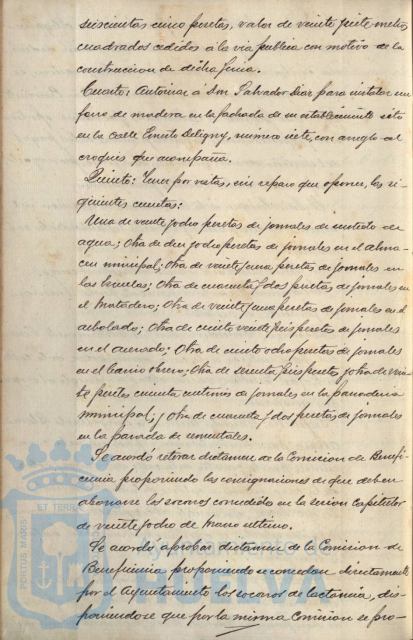 seiscientas cinco pesetas, valor de veinte y siete metros
cuadrados cedidos a la via publica con motivo de la
construccion de dicha finca.
Cuarto: Autorizar á Don Salvador Diaz para instalar un
foro de madera en la fachada de su establecimiento sito
en la calle Ernesto Deligny, número siete, con arreglo al
croquis que acompaña.
Quinto: Tener por vistas, sin reparo que oponer, las si-
guientes cuentas:
Una de veinte y ocho pesetas de jornales de
agua; Otra de diez y ocho pesetas de jornales en el alma-
cen municipal; Otra de veinte y una pesetas de jornales en
las Escuelas; Otra de cuarenta y dos pesetas de jornales en
el Matadero; Otra de veinte y una pesetas de jornales en el
arbolado; Otra de ciento veinte y seis pesetas de jornales
en el acerado; Otra de ciento ocho pesetas de jornales
en el barrio obrero; Otra de sesenta y seis pesetas y otra de vein-
te pesetas cincuenta centimos de jornales en la panaderia
municipal; y Otra de cuarenta y dos pesetas de jornales
en la parada de sementales.
Se acordó retirar dictamen de la Comision de Benefi-
cencia proponiendo las consignaciones de que deben
abonarse los socorros concedidos en la sesion capitular
de veinte y ocho de Marzo ultimo.
Se acordó aprobar dictamen de la Comision de
Beneficencia proponiendo se concedan directamente
por el Ayuntamiento los socorros de lactancia, dis-
poniendose que por la misma Comision se pro-
PORTUS MARIS
ET TERRÆ
Ayuntamiento de
HUELVA